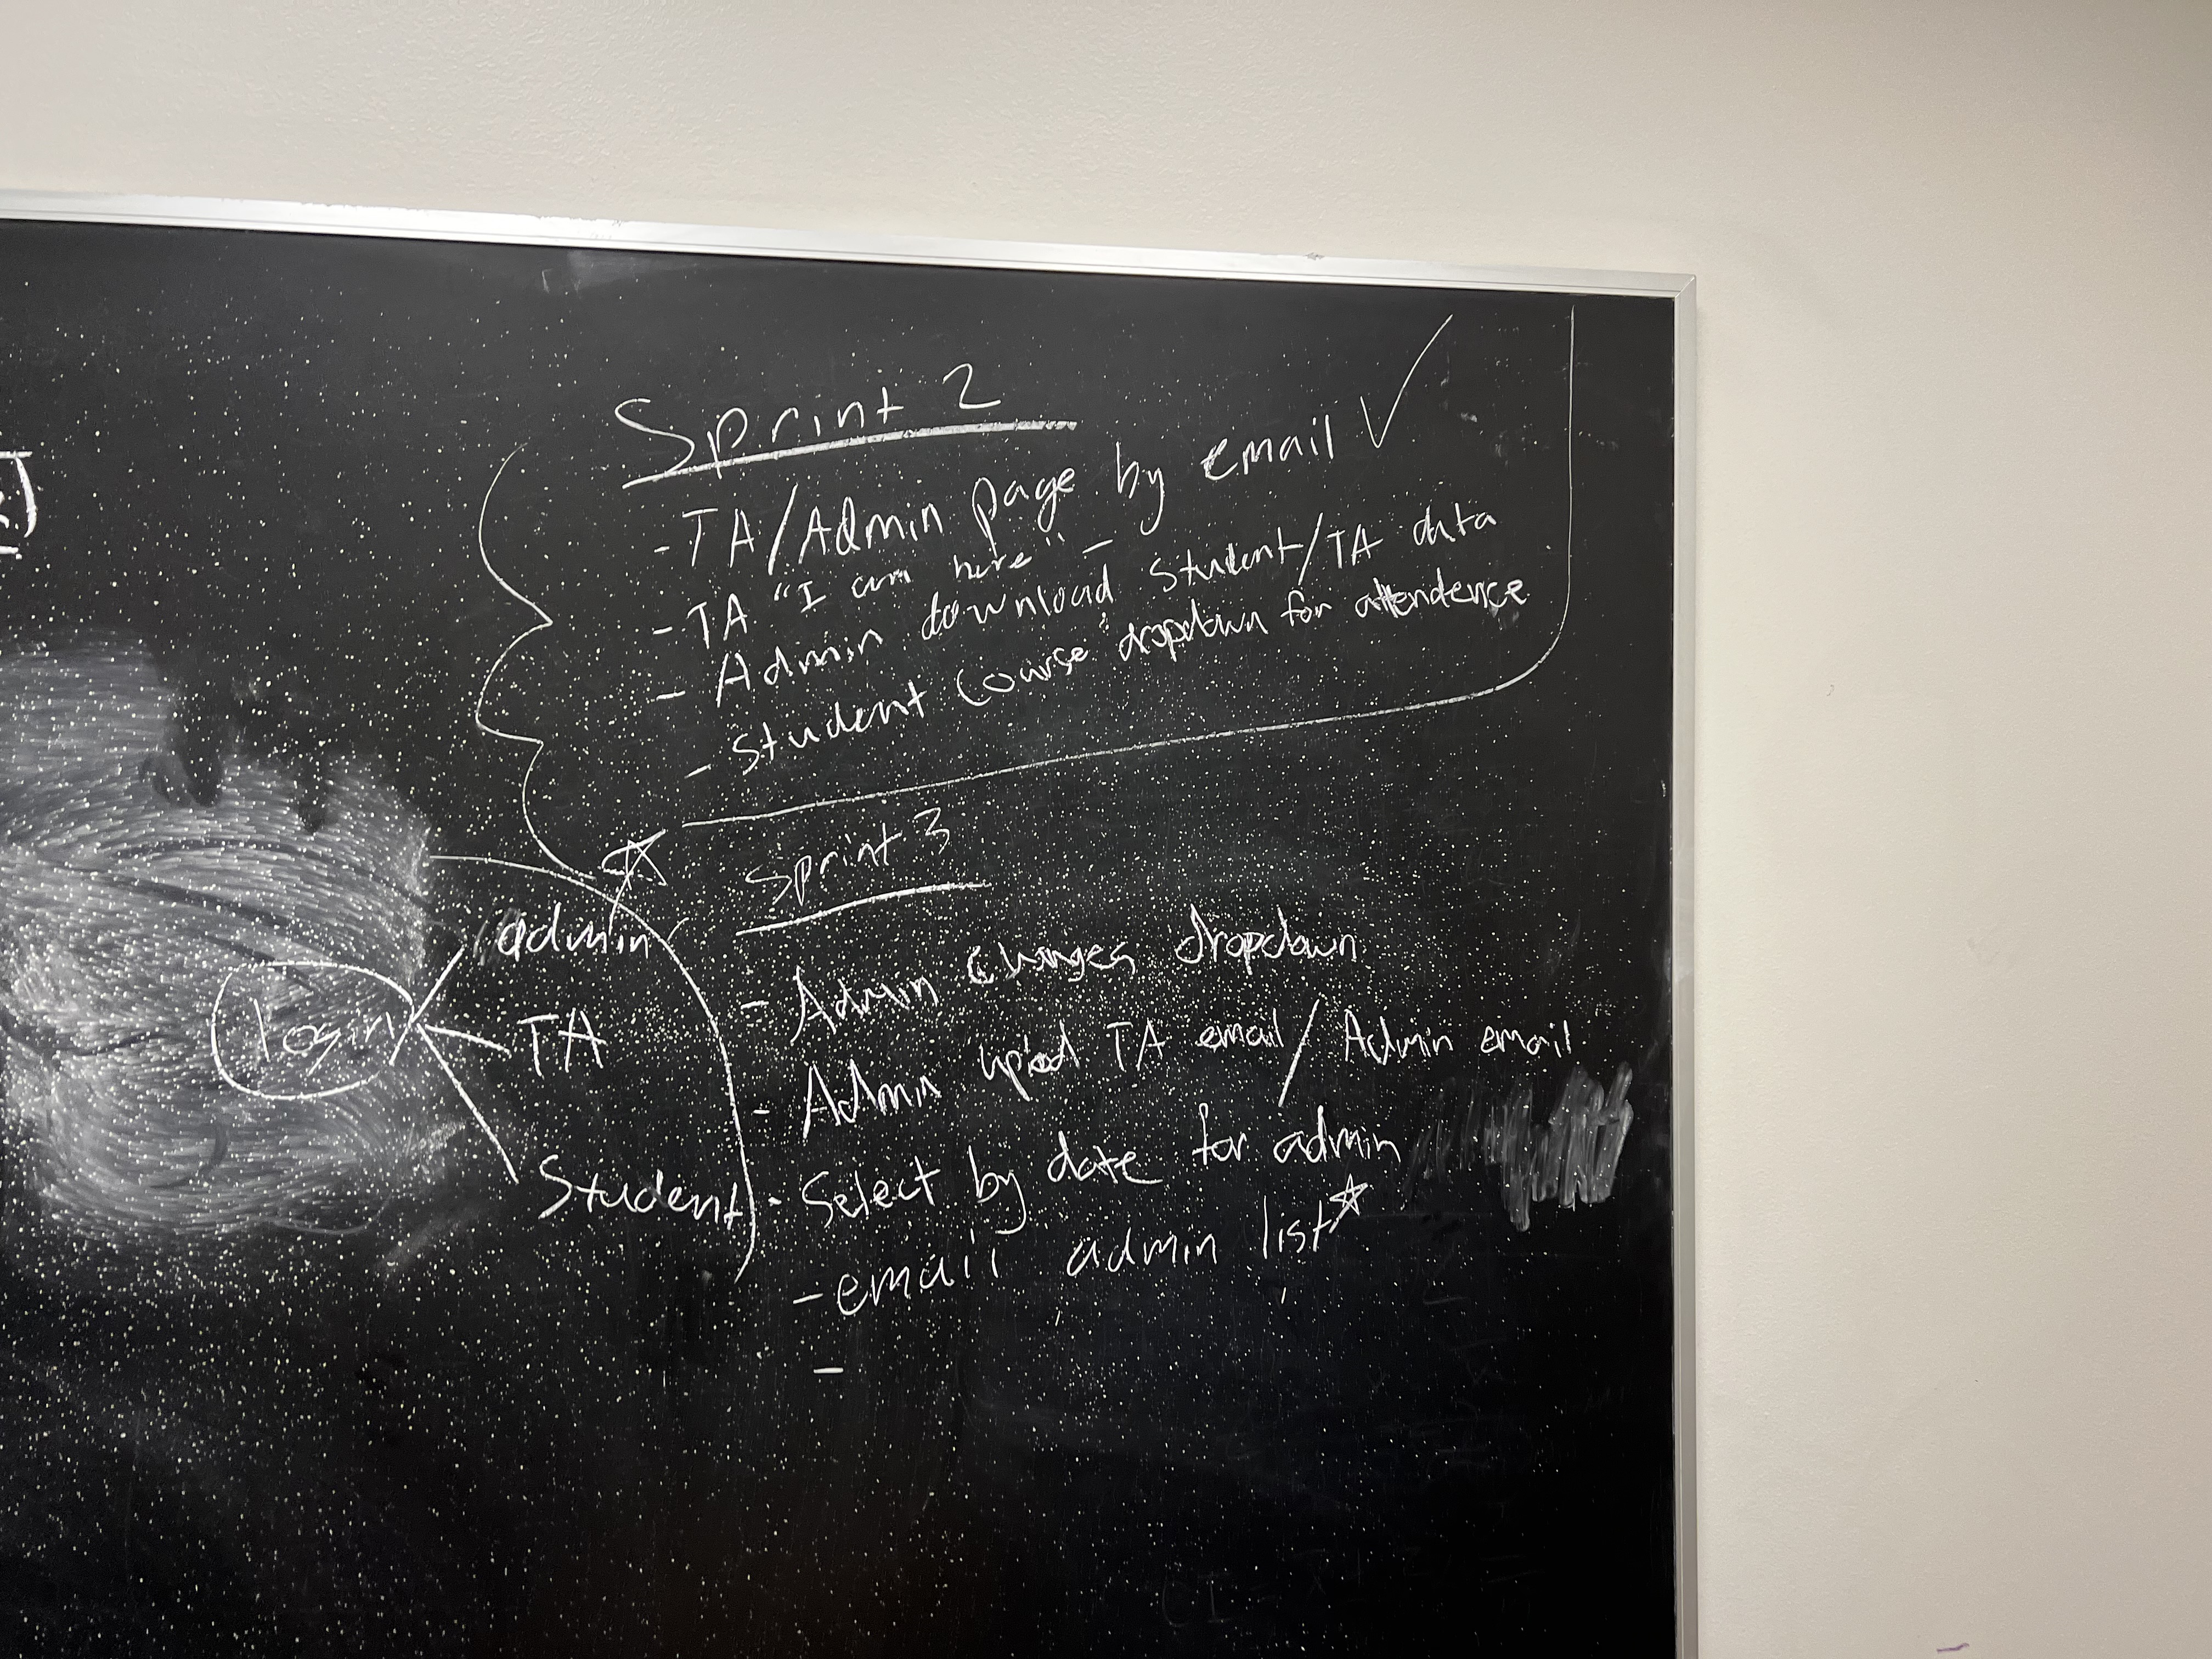 Sprint 2
- TA/Admin page by email ✓
- TA "I am here" -
- Admin download student/TA data
- Student course dropdown for attendence
Sprint 3
- Admin changes dropdown
- Admin TA email / Admin email
- Select by date for admin
- email admin list ☆
-
login
admin ☆
TA
Student